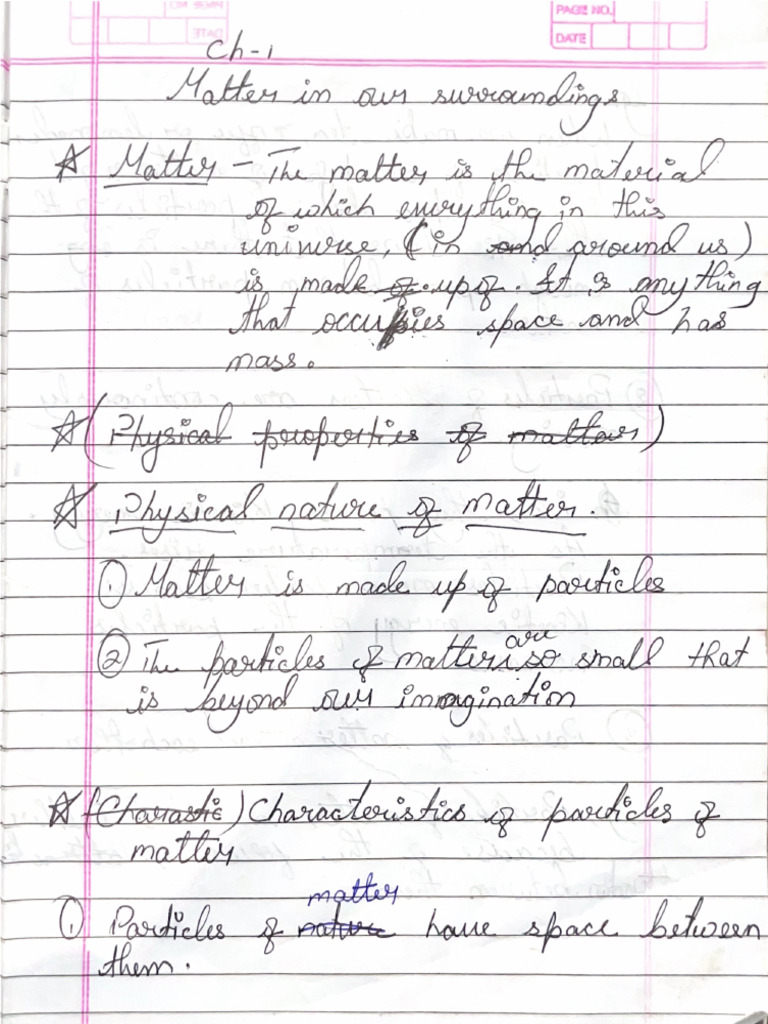 PAGE NO.
DATE
Ch-1
Matter in our surroundings
☆ Matter - The matter is the material
of which everything in this
universe, (in and around us)
is made of. up of. It is anything
that occupies space and has
mass.
☆ (Physical properties of matters)
☆ Physical nature of matter.
① Matter is made up of particles
are
② The particles of matter is so small that
is beyond our immagination
☆ (Charastic) Characteristics of particles of
matter
matter
① Particles of nature have space between
them.